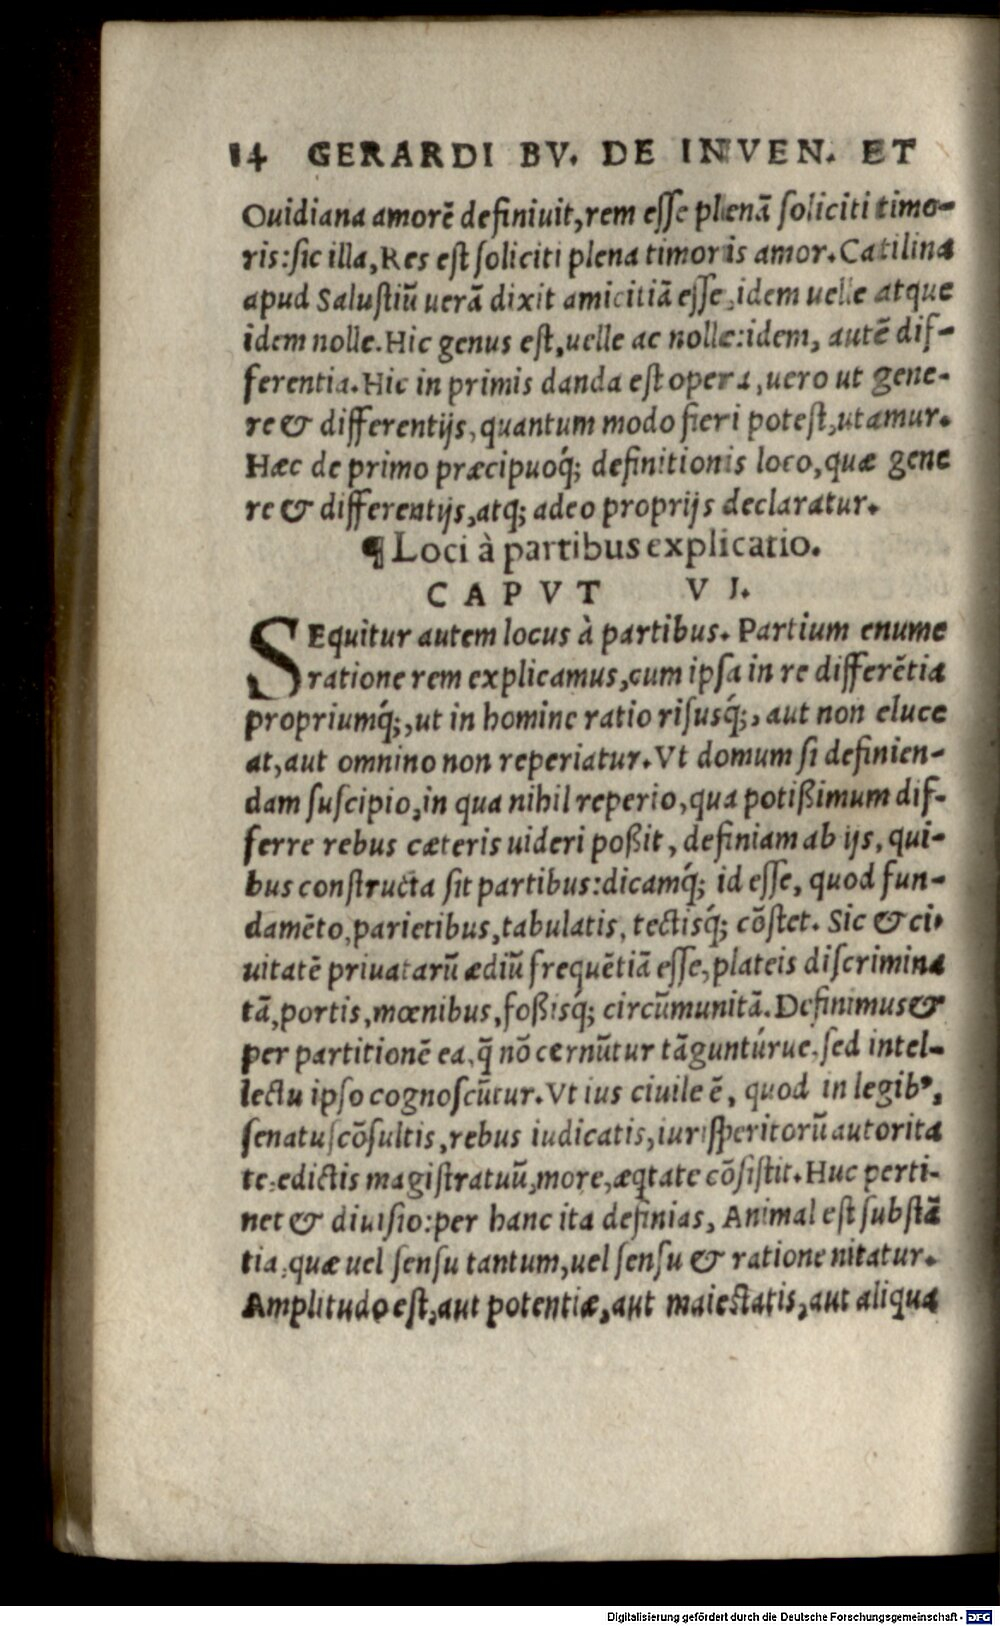 14 GERARDI BV. DE INVEN. ET
Ouidiana amorē definiuit, rem esse plenā soliciti timo-
ris: sic illa, Res est soliciti plena timoris amor. Catilina
apud Salustiū uerā dixit amicitiā esse, idem uelle atque
idem nolle. Hic genus est, uelle ac nolle: idem, autē dif-
ferentia. Hic in primis danda est opera, uero ut gene-
re & differentijs, quantum modo fieri potest, utamur.
Hæc de primo præcipuoq́; definitionis loco, quæ gene
re & differentijs, atq; adeo proprijs declaratur.
¶ Loci à partibus explicatio.
CAPVT VI.
SEquitur autem locus à partibus. Partium enume
ratione rem explicamus, cum ipsa in re differētia
propriumq́;, ut in homine ratio risusq́;, aut non eluce
at, aut omnino non reperiatur. Vt domum si definien-
dam suscipio, in qua nihil reperio, qua potißimum dif-
ferre rebus cæteris uideri poßit, definiam ab ijs, qui-
bus constructa sit partibus: dicamq́; id esse, quod fun-
damēto, parietibus, tabulatis, tectisq́; cōstet. Sic & ci-
uitatē priuatarū ædiū frequētiā esse, plateis discrimina
tā, portis, mœnibus, foßisq́; circūmunitā. Definimus &
per partitionē ea, q̄ nō cernūtur tāgunturúe, sed intel-
lectu ipso cognoscūtur. Vt ius ciuile ē, quod in legibꝰ,
senatuscōsultis, rebus iudicatis, iurisperitorū autorita
te, edictis magistratuū, more, æqtate cōsistit. Huc perti-
net & diuisio: per hanc ita definias, Animal est substā
tia, quæ uel sensu tantum, uel sensu & ratione nitatur.
Amplitudo est, aut potentiæ, aut maiestatis, aut aliqua
Digitalisierung gefördert durch die Deutsche Forschungsgemeinschaft - DFG